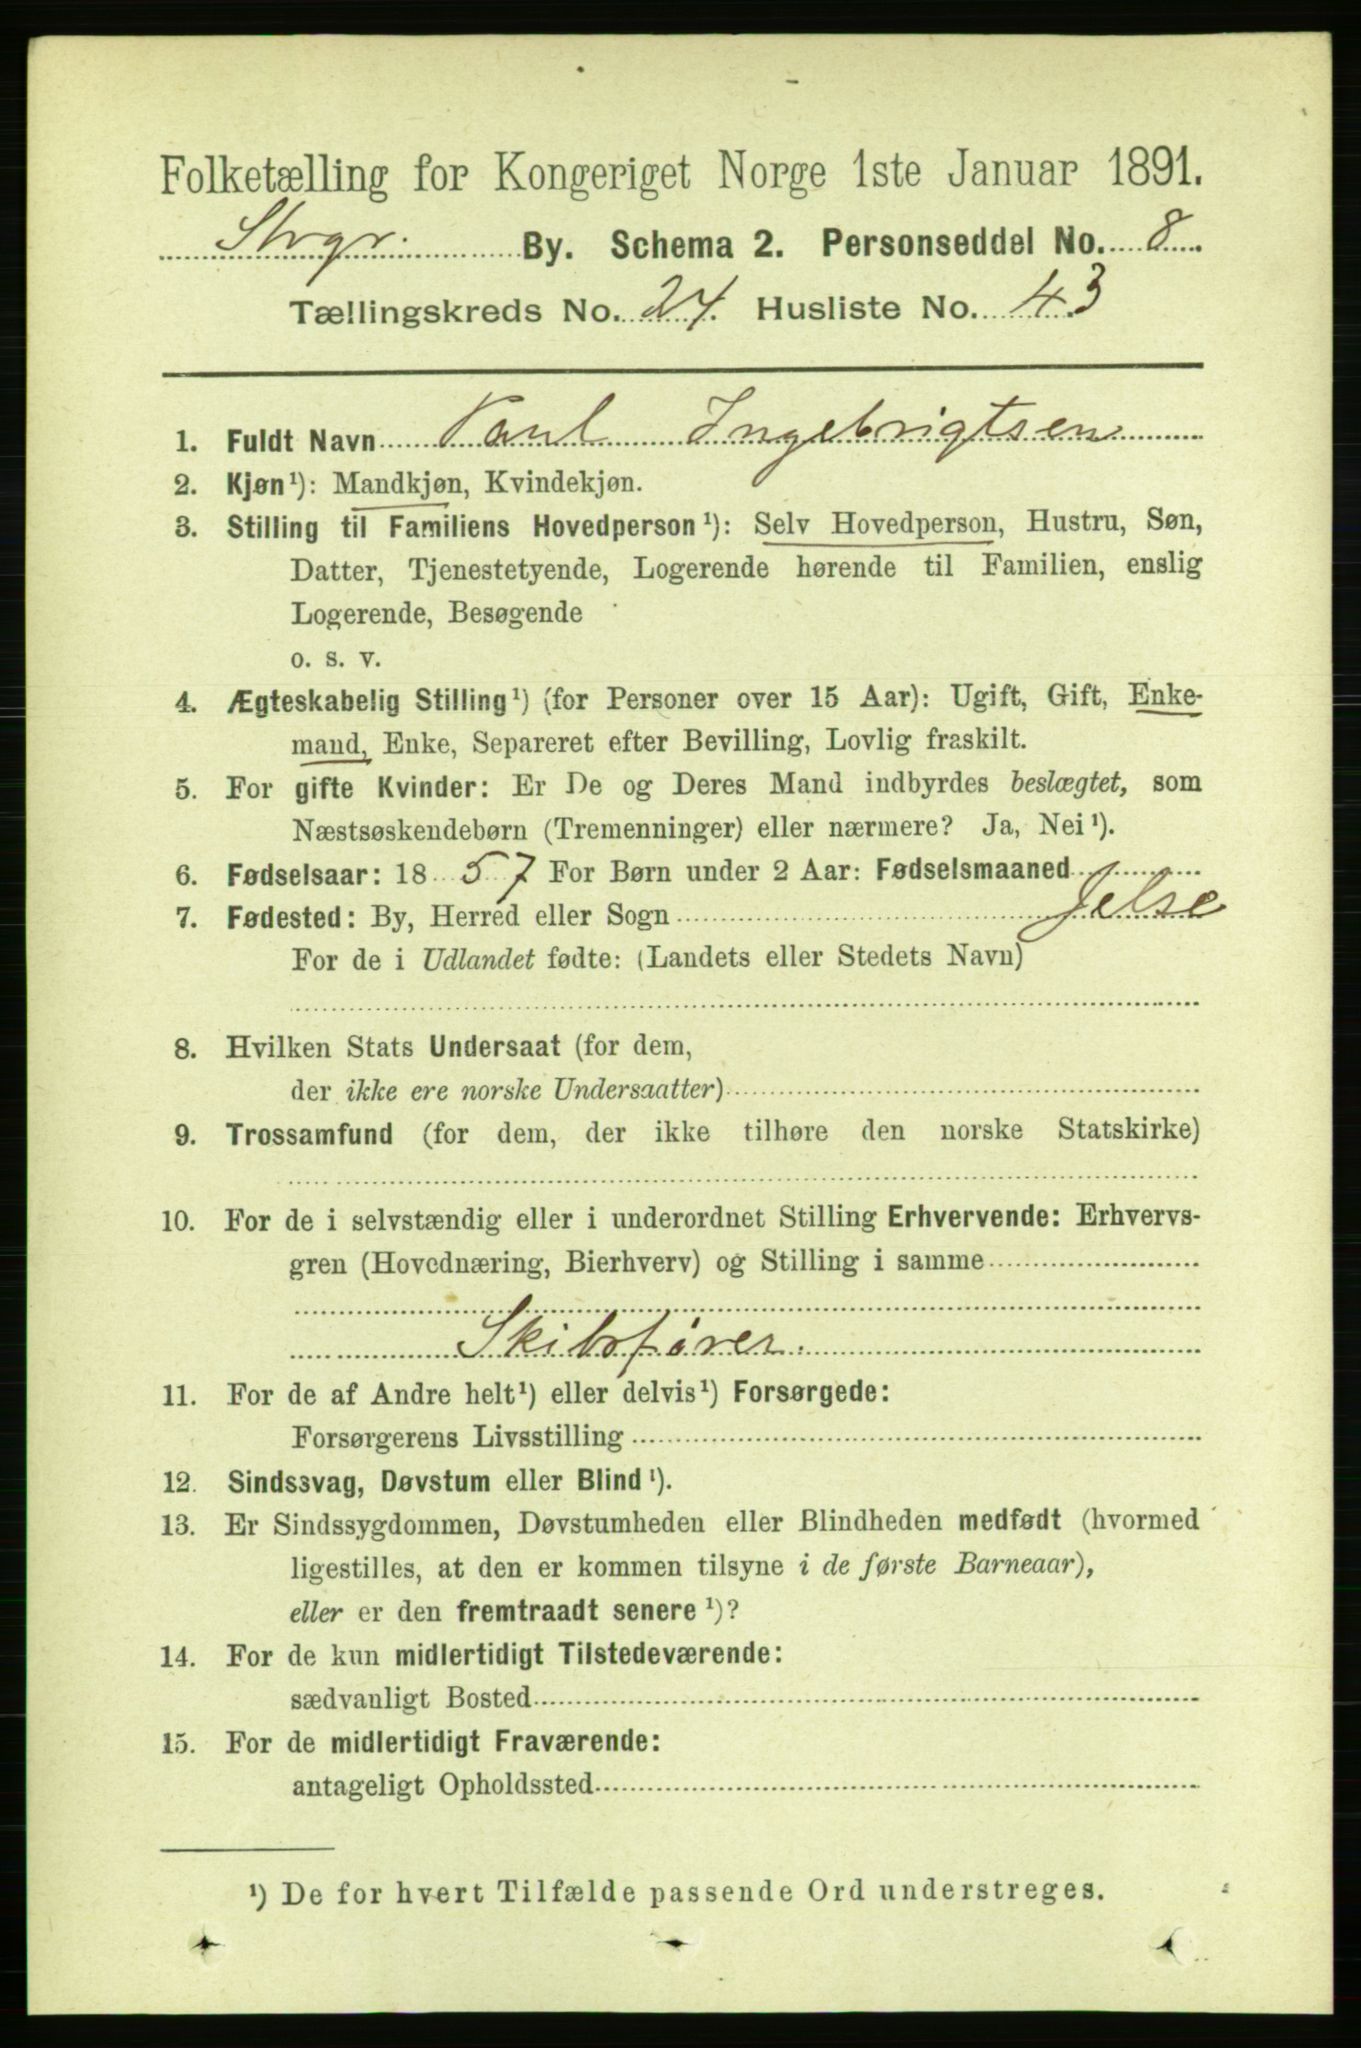 Folketælling for Kongeriget Norge 1ste Januar 1891.
Stvgr. By. Schema 2. Personseddel No. 8
Tællingskreds No. 24. Husliste No. 43
1. Fuldt Navn Paul Ingebrigtsen
2. Kjøn¹): Mandkjøn, Kvindekjøn.
3. Stilling til Familiens Hovedperson¹): Selv Hovedperson, Hustru, Søn,
Datter, Tjenestetyende, Logerende hørende til Familien, enslig
Logerende, Besøgende
o. s. v.
4. Ægteskabelig Stilling¹) (for Personer over 15 Aar): Ugift, Gift, Enke-
mand, Enke, Separeret efter Bevilling, Lovlig fraskilt.
5. For gifte Kvinder: Er De og Deres Mand indbyrdes beslægtet, som
Næstsøskendebørn (Tremenninger) eller nærmere? Ja, Nei¹).
6. Fødselsaar: 1857 For Børn under 2 Aar: Fødselsmaaned
7. Fødested: By, Herred eller Sogn Jelse
For de i Udlandet fødte: (Landets eller Stedets Navn)
8. Hvilken Stats Undersaat (for dem,
der ikke ere norske Undersaatter)
9. Trossamfund (for dem, der ikke tilhøre den norske Statskirke)
10. For de i selvstændig eller i underordnet Stilling Erhvervende: Erhvervs-
gren (Hovednæring, Bierhverv) og Stilling i samme
Skibsfører.
11. For de af Andre helt¹) eller delvis¹) Forsørgede:
Forsørgerens Livsstilling
12. Sindssvag, Døvstum eller Blind¹).
13. Er Sindssygdommen, Døvstumheden eller Blindheden medfødt (hvormed
ligestilles, at den er kommen tilsyne i de første Barneaar),
eller er den fremtraadt senere¹)?
14. For de kun midlertidigt Tilstedeværende:
sædvanligt Bosted
15. For de midlertidigt Fraværende:
antageligt Opholdssted
¹) De for hvert Tilfælde passende Ord understreges.